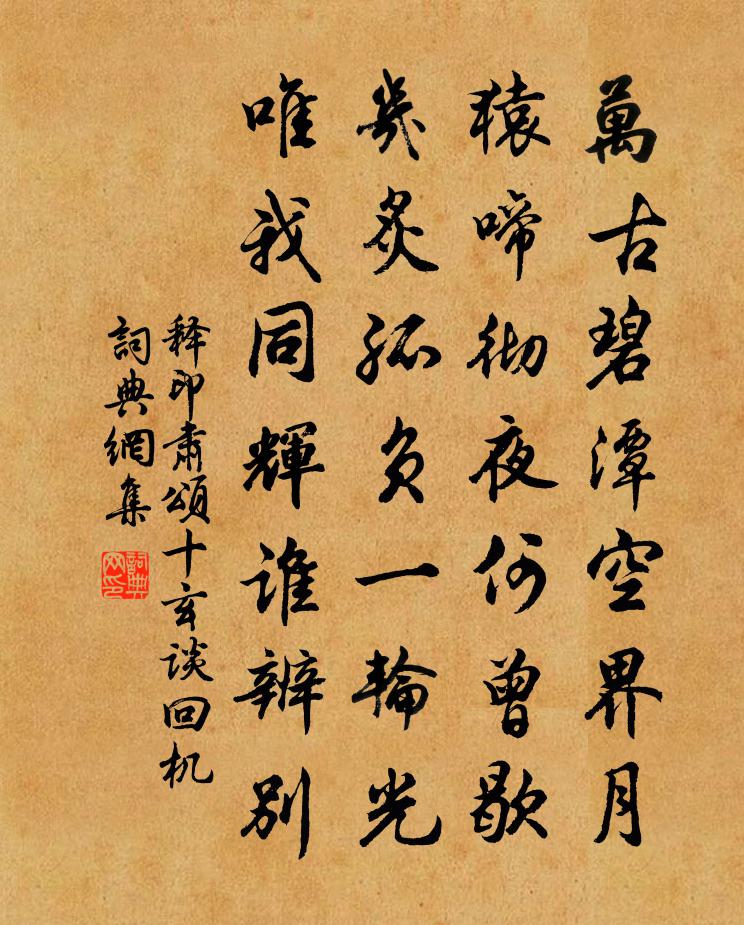 萬古碧潭空界月
猿啼彻夜何曾歇
幾炙孤负一輪光
唯我同輝谁辨别
释印肃頌十玄谈回机
詞典網集